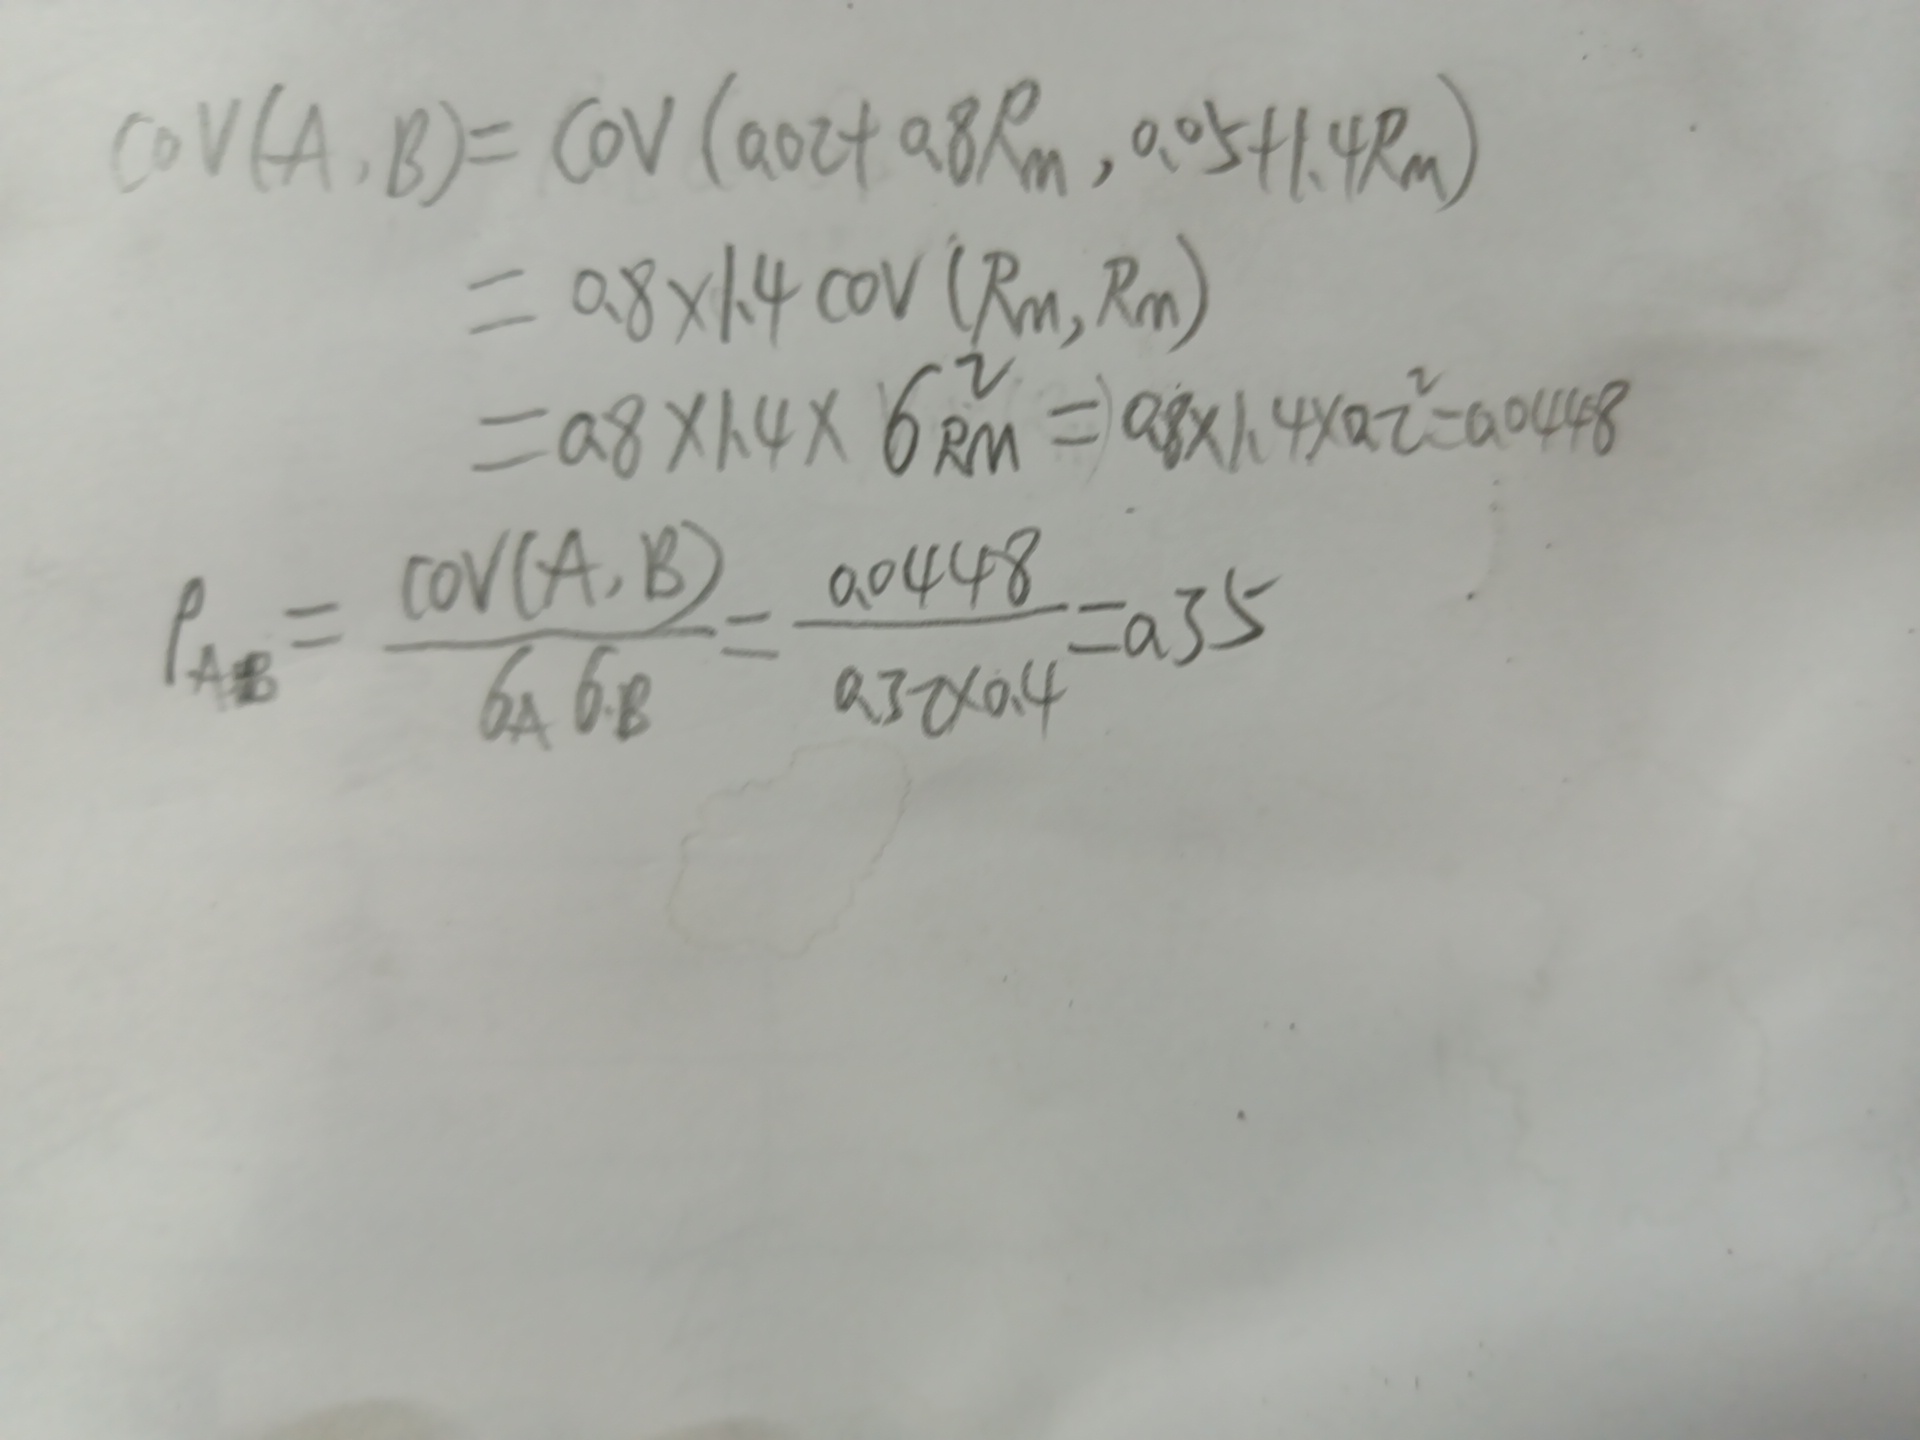 COV(A,B)=COV(0.02+0.8Rm,0.05+1.4Rm)
=0.8×1.4COV(Rm,Rm)
=0.8×1.4×σ²RM=0.8×1.4×0.2²=0.0448
ρAB=COV(A,B)/σAσB=0.0448/0.32×0.4=0.35